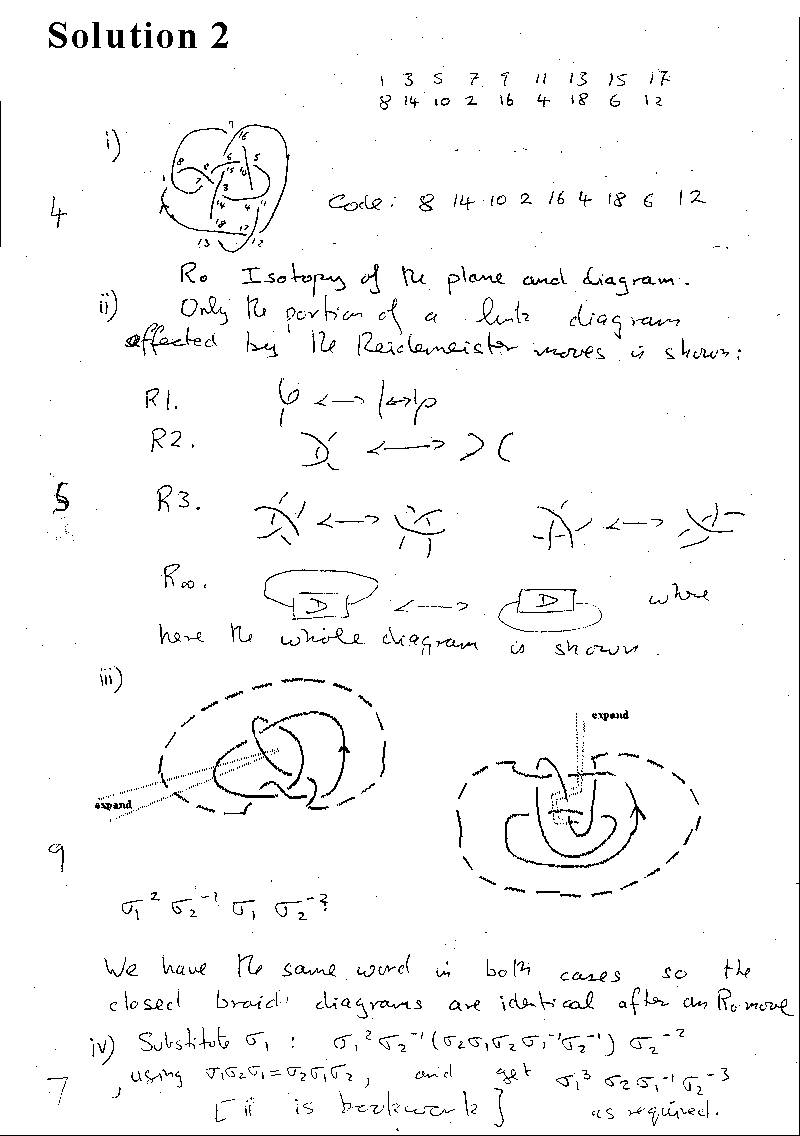 Solution 2
1 3 5 7 9 11 13 15 17
8 14 10 2 16 4 18 6 12
i)
4
Code: 8 14 10 2 16 4 18 6 12
R₀ Isotopy of the plane and diagram.
ii) Only the portion of a link diagram
affected by the Reidemeister moves is shown:
R1.
R2.
5 R3.
R∞. D D where
here the whole diagram is shown.
iii)
expand
expand
9
We have the same word in both cases so the
closed braid diagrams are identical after an R₀ move
iv) Substitute σ₁ : σ₁² σ₂⁻¹ (σ₂σ₁σ₂σ₁⁻¹σ₂⁻¹) σ₂⁻²
7 using σ₁σ₂σ₁=σ₂σ₁σ₂, and get σ₁³ σ₂ σ₁⁻¹ σ₂⁻³
[ii is bookwork] as required.